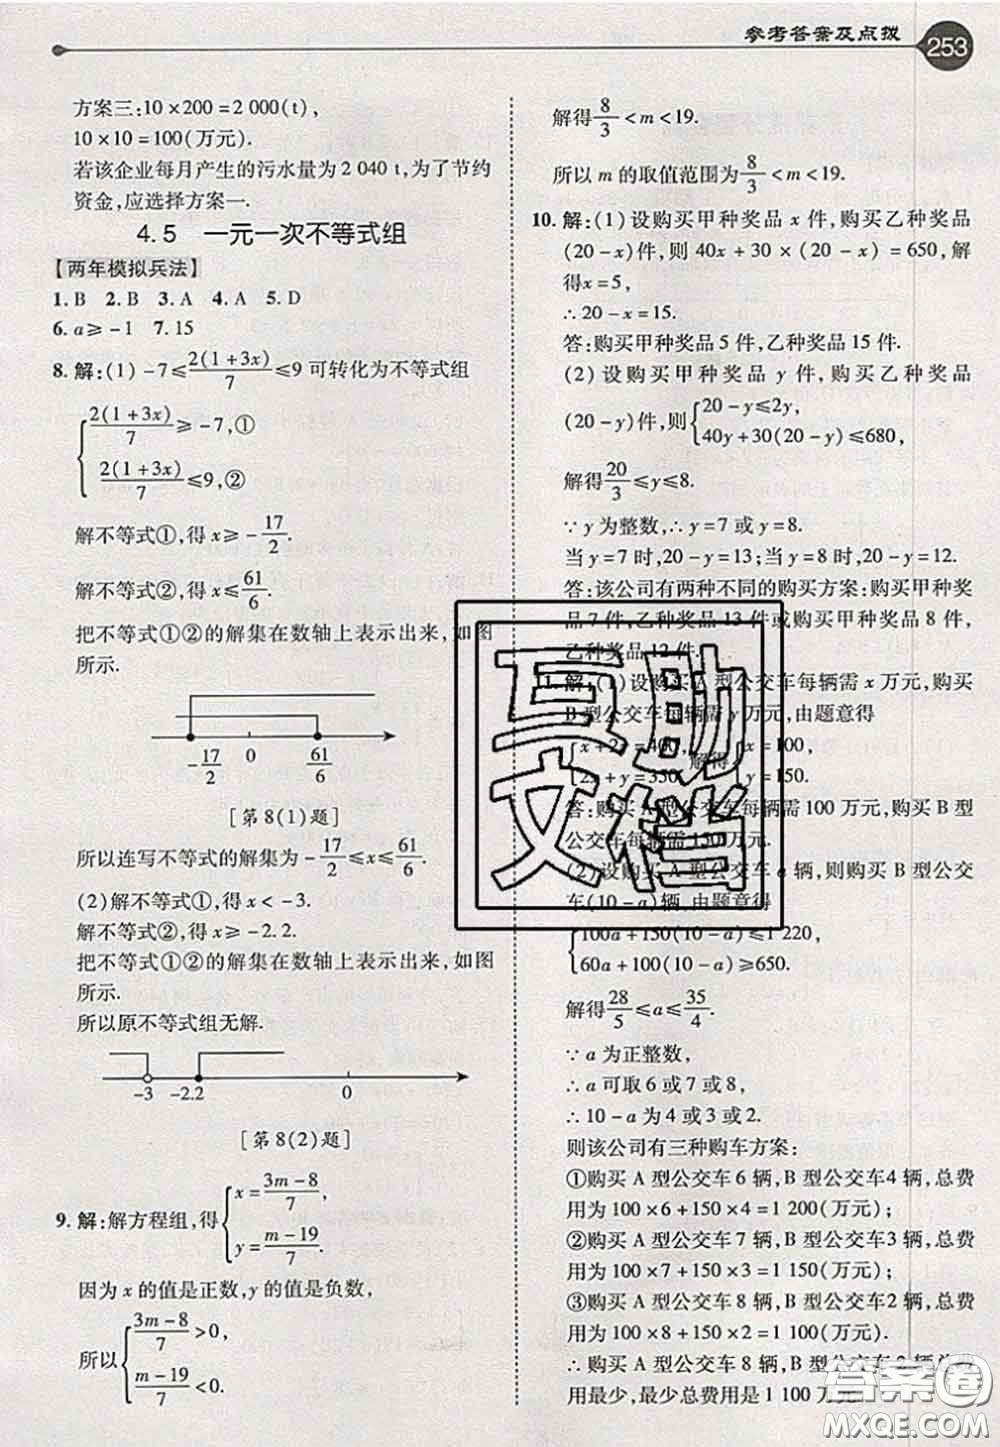 参考答案及点拨
253
方案三:10×200=2 000(t),
10×10=100(万元).
若该企业每月产生的污水量为2 040 t,为了节约
资金,应选择方案一.
4.5 一元一次不等式组
【两年模拟兵法】
1.B 2.B 3.A 4.A 5.D
6.a≥-1 7.15
8.解:(1)-7≤2(1+3x)/7≤9可转化为不等式组
2(1+3x)/7≥-7,①
2(1+3x)/7≤9,②
解不等式①,得x≥-17/2.
解不等式②,得x≤61/6.
把不等式①②的解集在数轴上表示出来,如图
所示.
-17/2 0 61/6
[第8(1)题]
所以连写不等式的解集为-17/2≤x≤61/6.
(2)解不等式①,得x<-3.
解不等式②,得x≥-2.2.
把不等式①②的解集在数轴上表示出来,如图
所示.
所以原不等式组无解.
-3 -2.2 0
[第8(2)题]
9.解:解方程组,得{x=3m-8/7,
y=m-19/7.
因为x的值是正数,y的值是负数,
所以{3m-8/7>0,
m-19/7<0.
解得8/3<m<19.
所以m的取值范围为8/3<m<19.
10.解:(1)设购买甲种奖品x件,购买乙种奖品
(20-x)件,则40x+30×(20-x)=650,解
得x=5,
∴20-x=15.
答:购买甲种奖品5件,乙种奖品15件.
(2)设购买甲种奖品y件,购买乙种奖品
(20-y)件,则{20-y≤2y,
40y+30(20-y)≤680,
解得20/3≤y≤8.
∵y为整数,∴y=7或y=8.
当y=7时,20-y=13;当y=8时,20-y=12.
答:该公司有两种不同的购买方案:购买甲种奖
品7件,乙种奖品13件或购买甲种奖品8件,
乙种奖品12件.
解:(1)设购买A型公交车每辆需x万元,购买
B型公交车每辆需y万元,由题意得
{x+2y=400,
2x+y=350. 解得{x=100,
y=150.
答:购买A型公交车每辆需100万元,购买B型
公交车每辆需150万元.
(2)设购买A型公交车a辆,则购买B型公交
车(10-a)辆,由题意得
{100a+150(10-a)≤1 220,
60a+100(10-a)≥650.
解得28/5≤a≤35/4.
∵a为正整数,
∴a可取6或7或8,
∴10-a为4或3或2.
则该公司有三种购车方案:
①购买A型公交车6辆,B型公交车4辆,总费
用为100×6+150×4=1 200(万元);
②购买A型公交车7辆,B型公交车3辆,总费
用为100×7+150×3=1 150(万元);
③购买A型公交车8辆,B型公交车2辆,总费
用为100×8+150×2=1 100(万元).
∴购买A型公交车8辆,B型公交车2辆总费
用最少,最少总费用是1 100万元.
互助
文档
答案圈
MXQE.COM